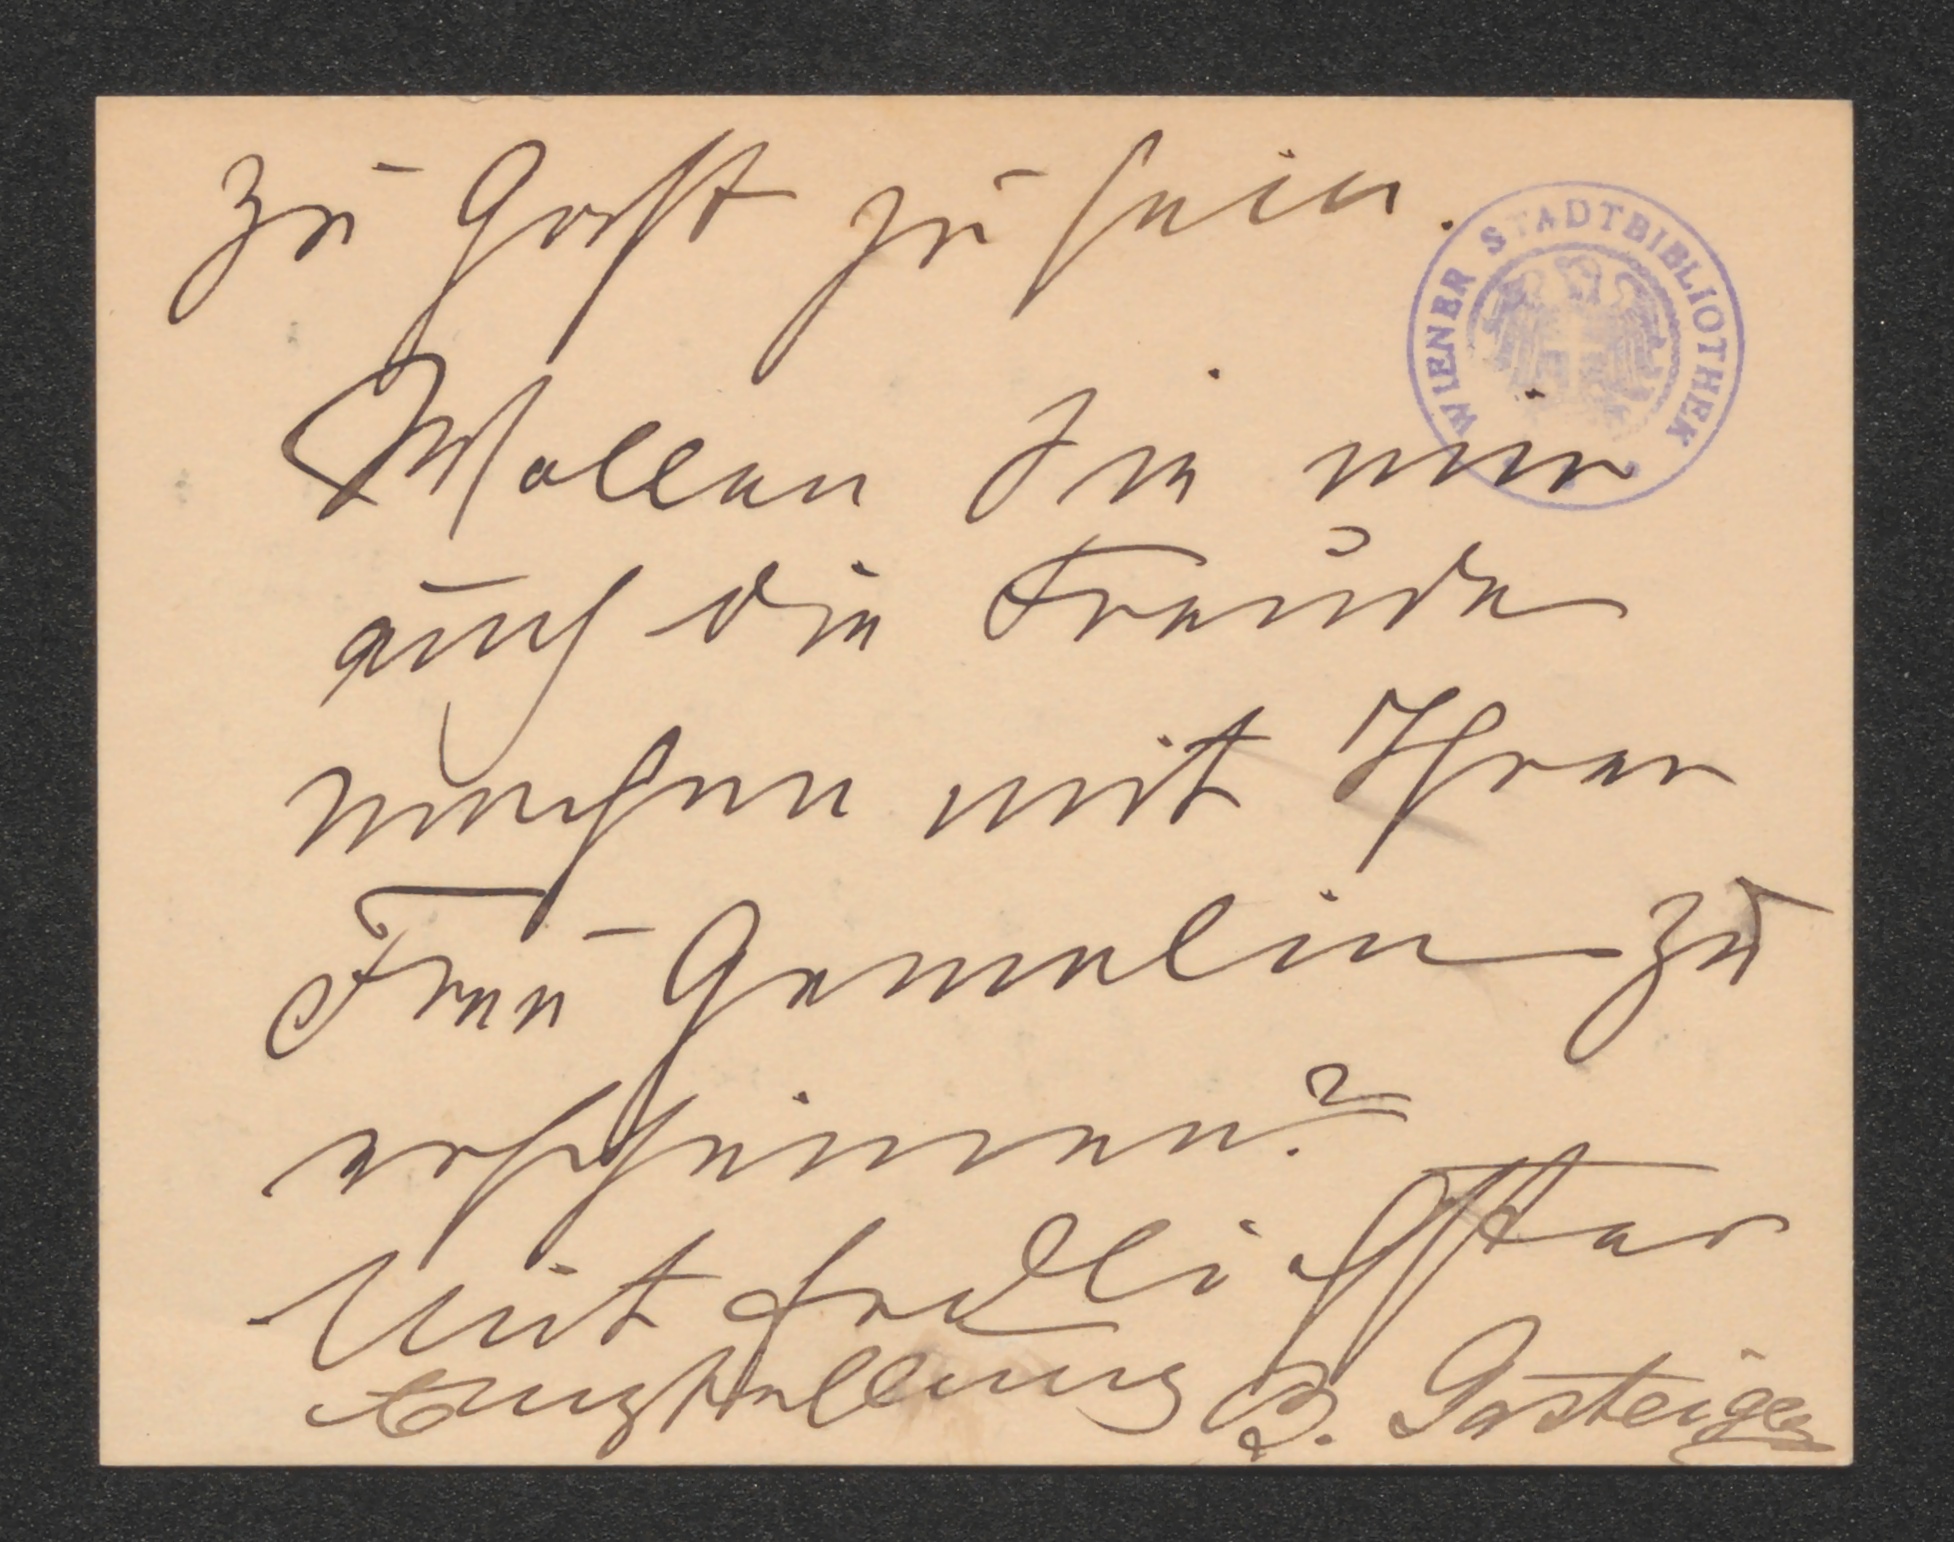 zu Gast zu sein.
WIENER STADTBIBLIOTHEK
Wollen Sie mir
auch die Freude
machen mit Ihrer
Frau Gemalin zu
erscheinen?
Mit freundlichster
Empfehlung B. Gasteiger